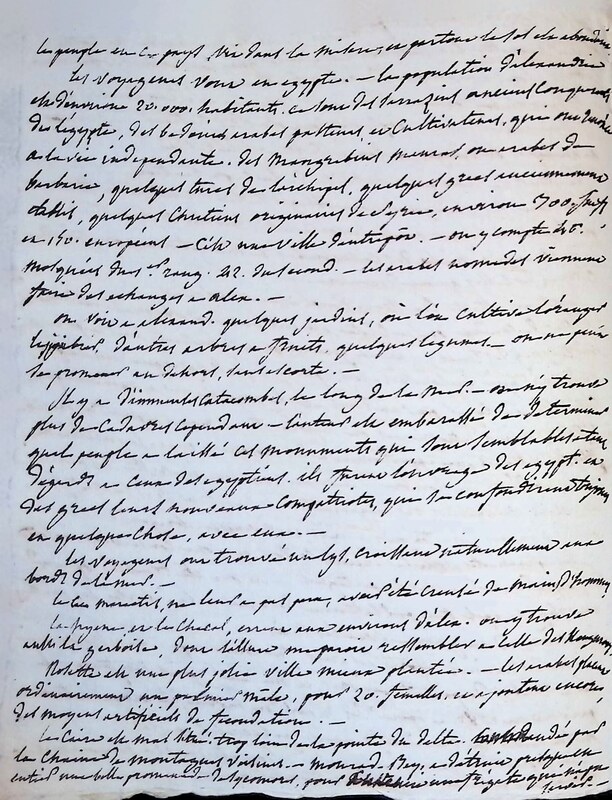 le peuple en ce pays, vit dans la misere, et partout le sol est abondant.
les voyageurs vont en egypte. — la population d'alexandrie
est d'environ 20.000. habitants. ce sont des sarrazins anciens conquerants
de l'egypte, des bedouins arabes pasteurs, et cultivateurs, qui ont
a la vie independante. des mangrebins maures, ou arabes de
barbarie, quelques turcs de l'archipel, quelques grecs anciennement
etablis, quelques chretiens originaires de Syrie, environ 500. juifs
et 150. européens — C'est une ville d'entrepôt. — on y compte
mosquées du 1er rang. 42. du second. — les arabes nomades viennent
faire des echanges a alex. —
on voit a alexand. quelques jardins, où l'on cultive l'oranger
d'autres arbres a fruits, quelques legumes. — on ne peut
se promener au dehors, sans escorte. —
Il y a d'immenses catacombes, le long de la mer. — on n'y trouve
plus de cadavres cependant — l'auteur est embarassé de determiner
quel peuple a laissé ces monuments qui sont semblables a
d'égards a ceux des egyptiens. ils furent l'ouvrage des egypt. et
des grecs leurs nouveaux compatriotes, qui se confondirent toujours
en quelque chose, avec eux. —
les voyageurs ont trouvé un lys, croissant naturellement aux
bords de la mer. —
le lac mareotis, ne leur a pas paru, avoir été creusé de main d'hommes
la hyene, et le chacal, errent aux environs d'alex. on y trouve
aussi la gerboise, dont l'allure me paroit ressembler a celle des Kangurous
Rosette est une plus jolie ville mieux plantée. — les arabes
ordinairement un palmier male, pour 20. femelles, et ajoutent encore,
des moyens artificiels de fecondation. —
le Caire est mal situé trop loin de la pointe du delta.
la chaine de montagnes voisines. — mourad Bey, a détruit presque en
entier une belle promenade de sycomores, pour une frégate